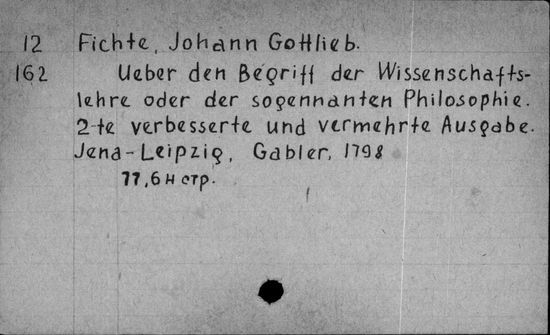 12 Fichte, Johann Gottlieb.
162 Ueber den Begriff der Wissenschafts-
lehre oder der sogennanten Philosophie.
2-te verbesserte und vermehrte Ausgabe.
Jena-Leipzig, Gabler, 1798
77,6 н стр.